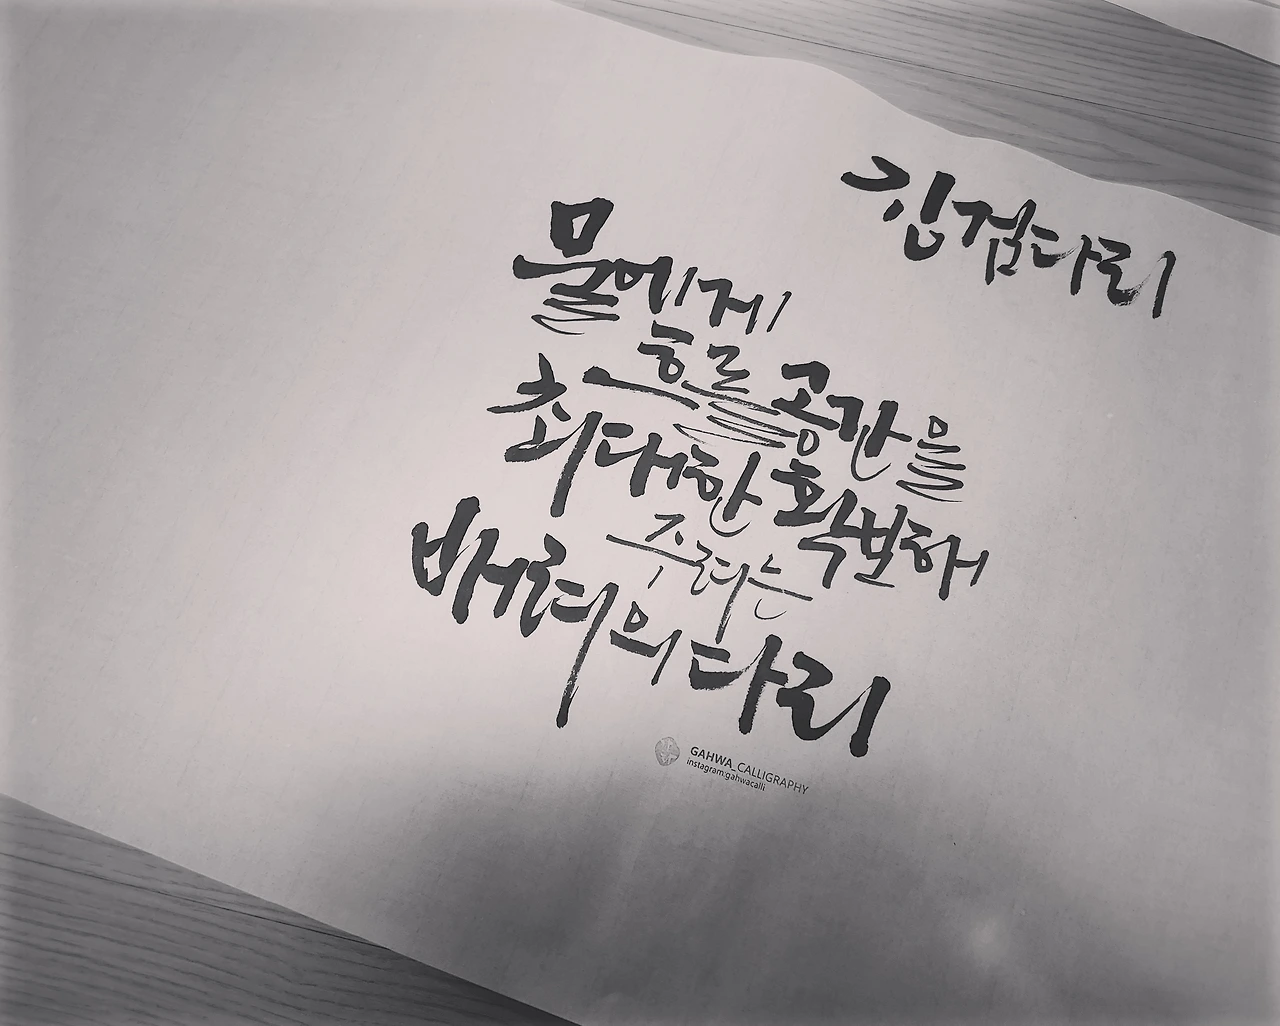 징검다리
물에게
흐를 공간을
최대한 확보해
주려는
배려의 다리
GAHWA_CALLIGRAPHY
instagram:gahwacalli